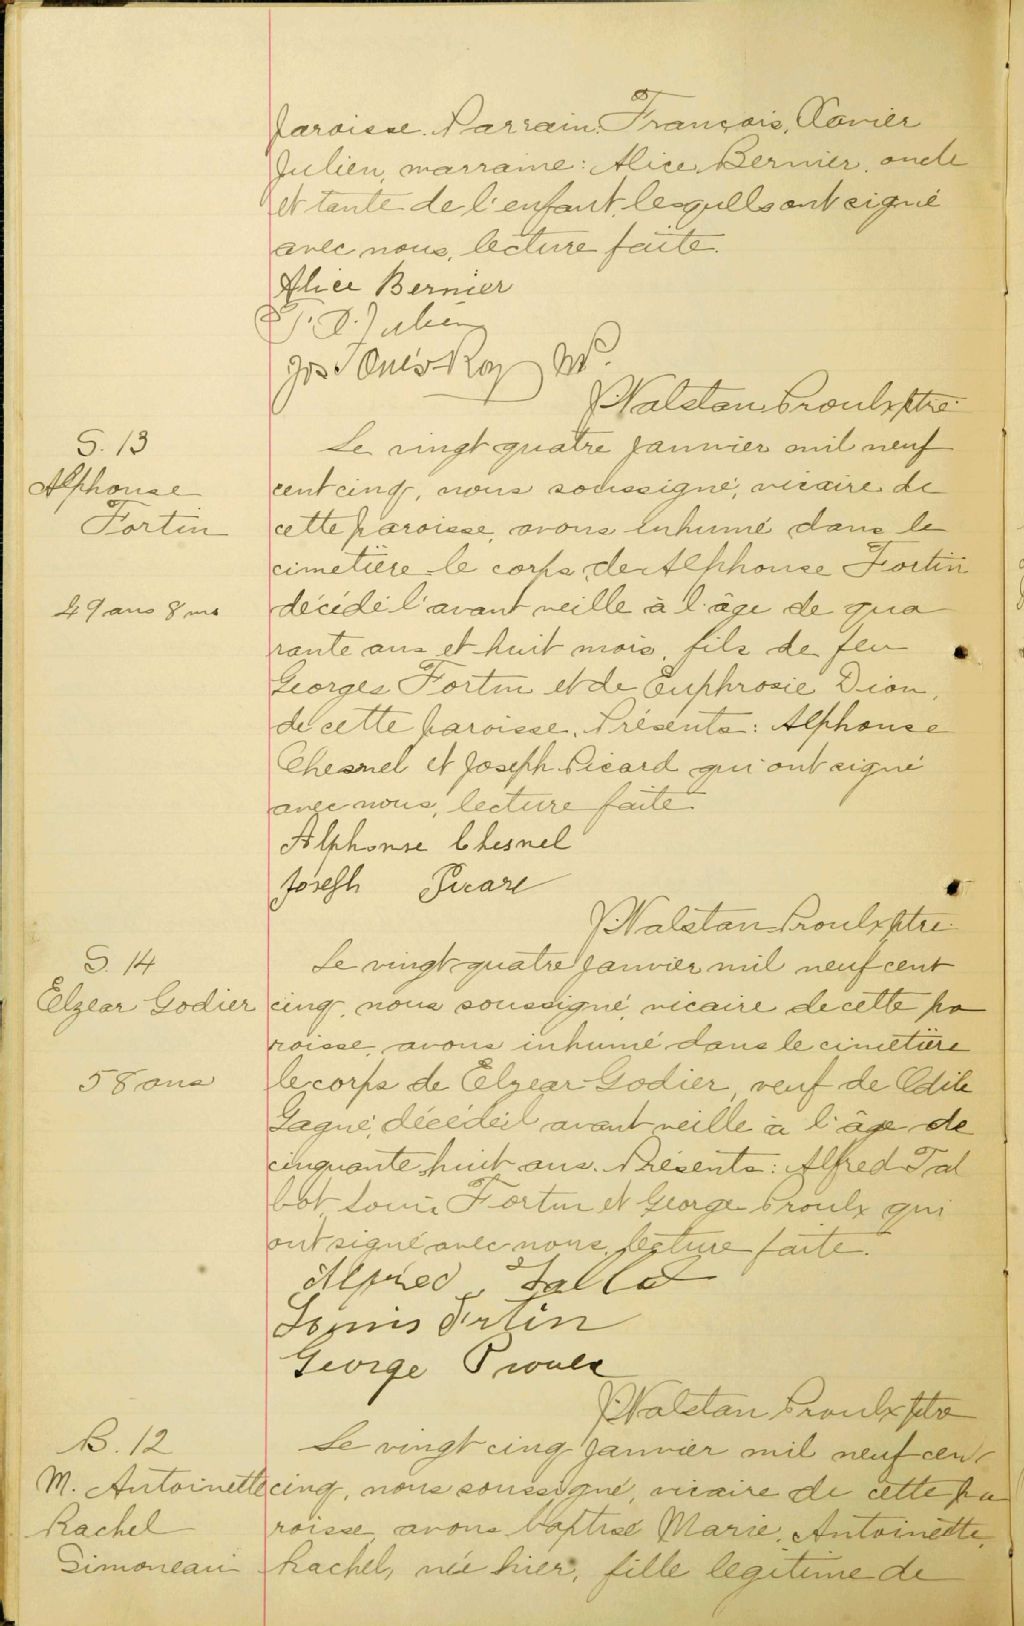 paroisse. Parrain: François, Xavier
Julien, marraine: Alice Bernier, oncle
et tante de l'enfant, lesquells ont signé
avec nous, lecture faite.
Alice Bernier
Julien
Jos Roy
J. Nalstan Proulx ptre.
S. 13
Alphonse
Fortin
49 ans 8 ms
Le vingt quatre Janvier mil neuf
cent cinq, nous soussigné, vicaire de
cette paroisse, avons inhumé dans le
cimetière le corps de Alphonse Fortin
décédé l'avant veille à l'âge de qua
rante ans et huit mois, fils de feu
Georges Fortin et de Euphrosie Dion,
de cette paroisse. Présents: Alphonse
Chesnel et Joseph Picard qui ont signé
avec nous, lecture faite.
Alphonse Chesnel
Joseph Picare
J. Nalstan Proulx ptre.
S. 14
Elzear Godier
58 ans
Le vingt-quatre Janvier mil neuf cent
cinq, nous soussigné, vicaire de cette pa
roisse, avons inhumé dans le cimetière
le corps de Elzear Godier, veuf de Odile
Gagné, décédé l'avant veille à l'âge de
cinquante huit ans. Présents: Alfred Tal
bot, Louis Fortin et George Proulx qui
ont signé avec nous, lecture faite.
Alfred Talbot
Louis Fortin
George Proulx
J. Nalstan Proulx ptre
B. 12
M. Antoinette
Rachel
Simoneau
Le vingt cinq Janvier mil neuf cent
cinq, nous soussigné, vicaire de cette pa
roisse, avons baptisé Marie, Antoinette,
Rachel, née hier, fille legitime de